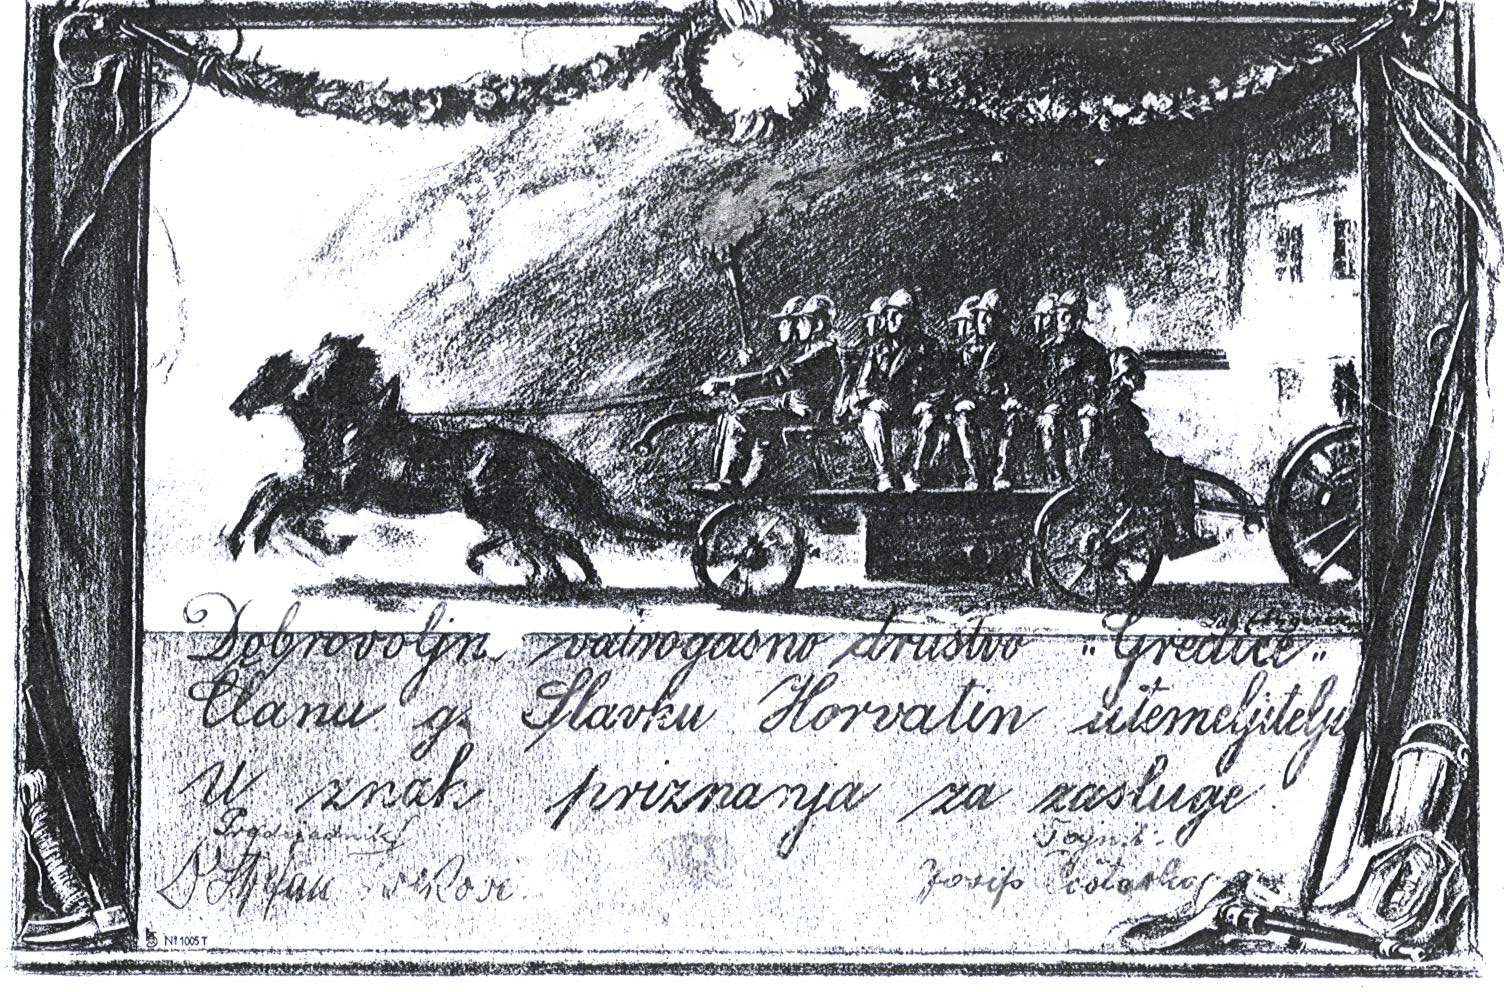 Dobrovoljno vatrogasno društvo "Gredice"
Članu g. Slavku Horvatin utemeljitelju
U znak priznanja za zasluge
Tajnik:
Josip
Nº 1005 T